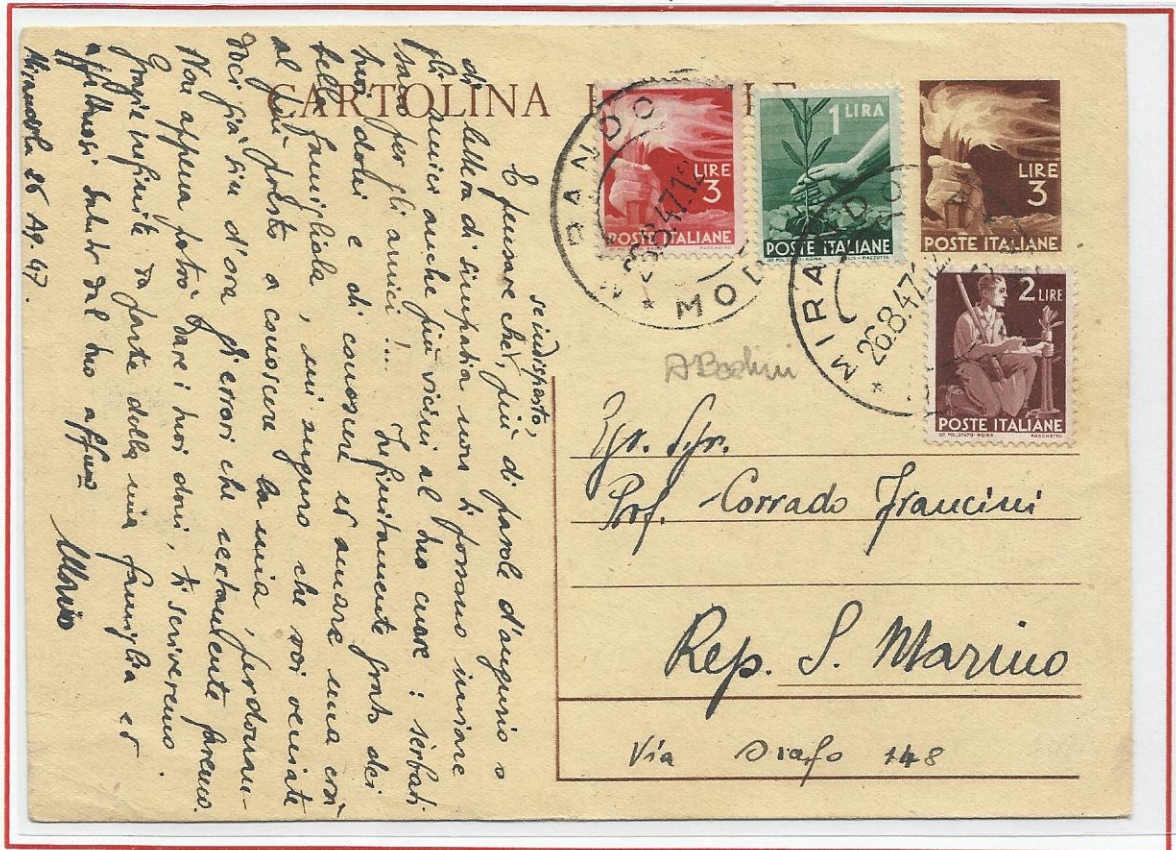 CARTOLINA
LIRE
3
POSTE ITALIANE
1 LIRA
POSTE ITALIANE
LIRE
3
POSTE ITALIANE
2 LIRE
POSTE ITALIANE
26.8.47
MIRANDO
MOD
MIRANDO
26.8.47
Prof. Corrado Francini
Rep. S. Marino
Via 148
se indisposto,
E pensare che, più di parole d'augurio o
di lettera di simpatia non ti possono inviare
gli amici anche più vicini al tuo cuore: serbati
sano per gli amici!... Infinitamente grato dei
tuoi doni e di conoscere ed amare una così
bella famigliola, mi auguro che voi veniate
al più presto a conoscere la mia, perdonan-
doci già sin d'ora gli errori che certamente faremo.
Non appena potrò dare i tuoi doni, ti scriveremo.
Grazie infinite da parte della mia famiglia ed
affettuosi saluti dal tuo aff.mo
Mario
Mirandola 26 Ag. 47.